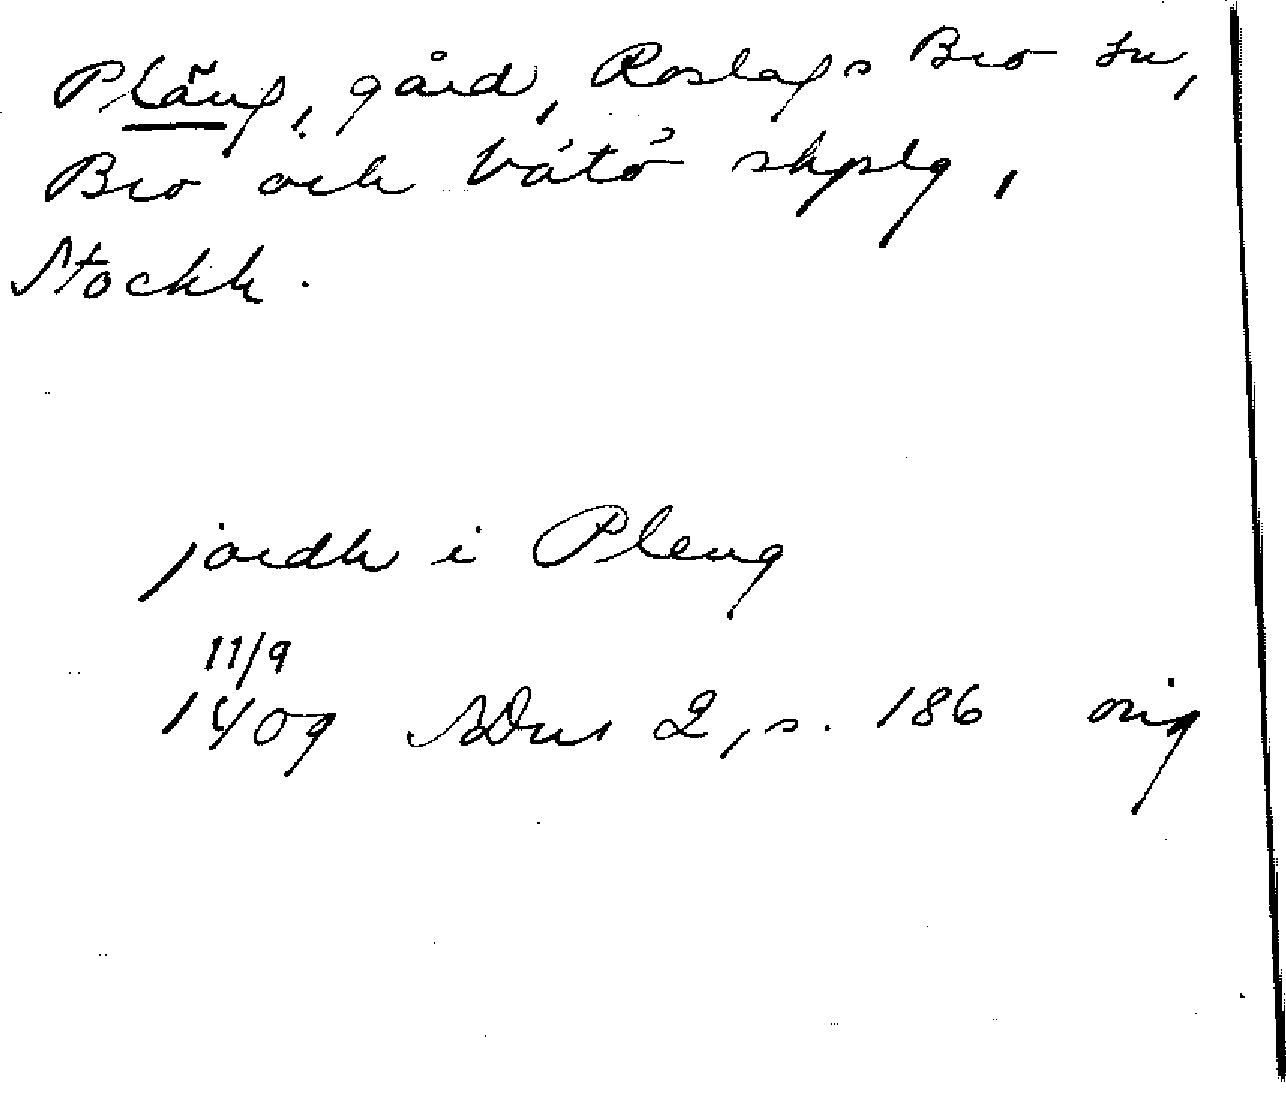 Pläng, gård, Roslags Bro sn,
Bro och Vätö skpslg,
Stockh.
jordh i Pleng
11/9
1409 SDns 2, s. 186 orig